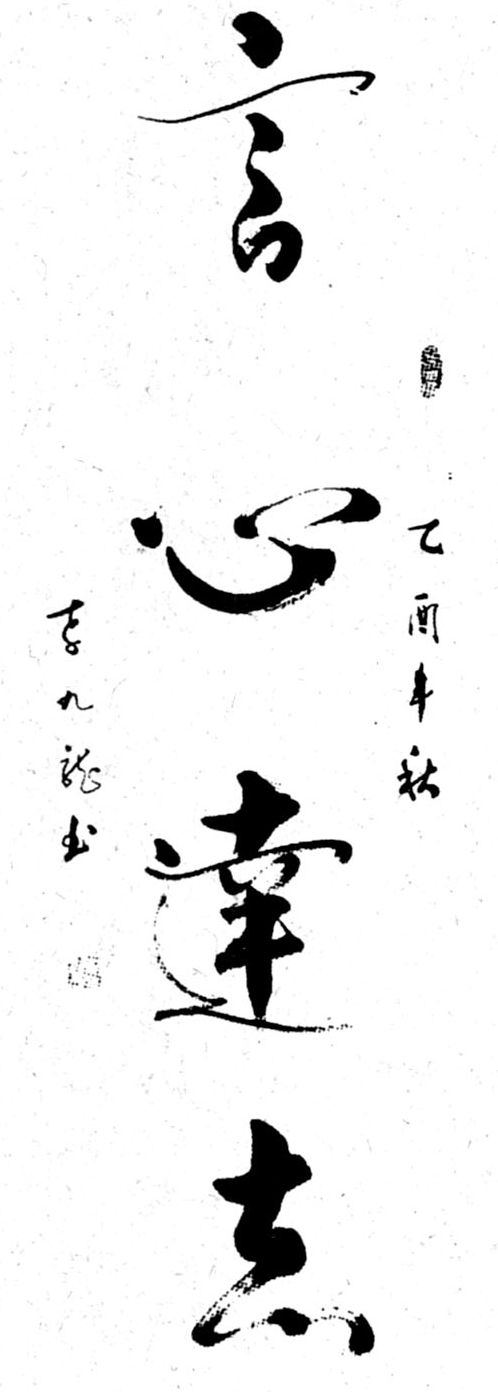 乙酉年秋
言心達志
李九龍书